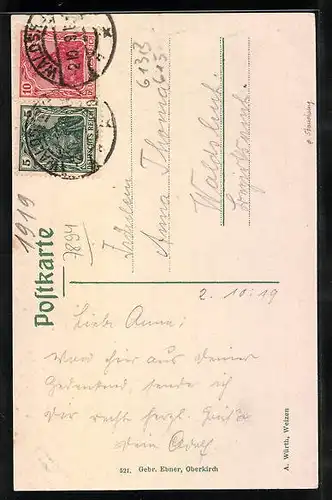 10
5
DEUTSCHES REICH
1919
Postkarte
7894
613B
613
Fräulein
Anna Thoma
Waldshut
2. 10. 19
Liebe Anna!
Ward hier aus deiner
gedenkend, sende ich
dir recht herzl. Grüße
Dein Adolf
521. Gebr. Ebner, Oberkirch
A. Würth, Weizen